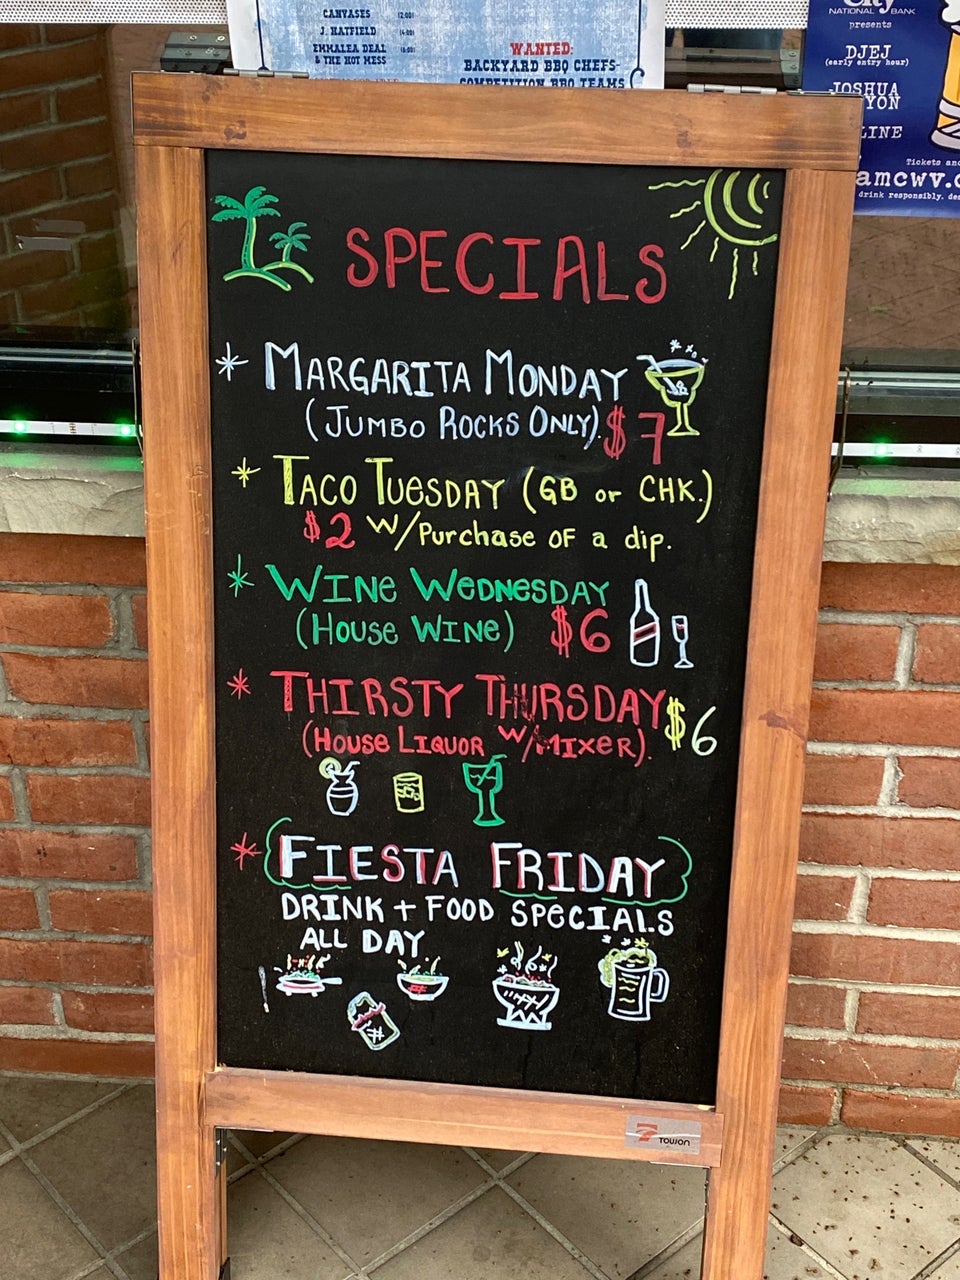 CANVASES (2:00)
J. HATFIELD (4:00)
EMMALEA DEAL (6:00)
& THE HOT MESS
WANTED:
BACKYARD BBQ CHEFS-
COMPETITION BBQ TEAMS
City
NATIONAL BANK
presents
DJEJ
(early entry hour)
JOSHUA
Tickets and
amcwv.c
drink responsibly.
SPECIALS
* MARGARITA MONDAY
(JUMBO ROCKS ONLY). $7
* TACO TUESDAY (GB or CHK.)
$2 W/Purchase OF a dip.
* WINe WeDNeSDAY
(HOUSe WINe) $6
* THIRSTY THURSDAY $6
(HOUSe LIQUOR W/MIXeR).
* FIESTA FRIDAY
DRINK + FOOD SPECIALS
ALL DAY
TOUJON